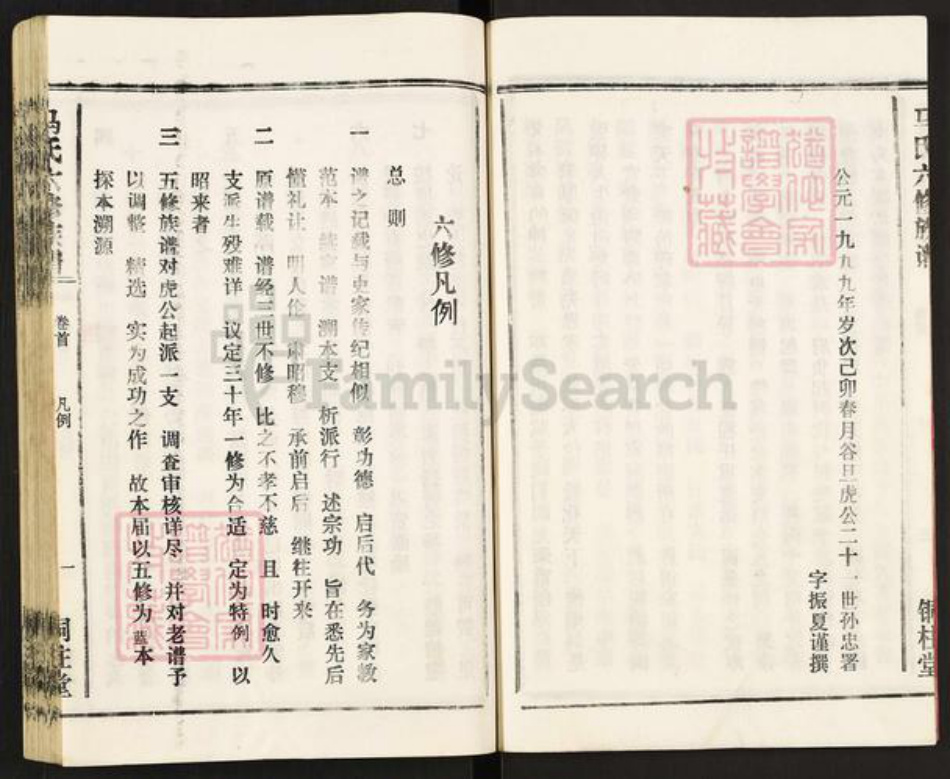 马氏六修族谱
铜柱堂
公元一九九九年岁次己卯春月谷旦虎公二十一世孙忠署
字振夏谨撰
六修凡例
总 则
一 谱之记载与史家传纪相似 彰功德 启后代 务为家教
范本 统宗谱 溯本支 析派行 述宗功 旨在悉先后
懂礼让 明人伦 肃昭穆 承前启后 继往开来
二 原谱载 谱经三世不修 比之不孝不慈 且 时愈久
支派生殁难详 议定三十年一修为合适 定为特例 以
昭来者
三 五修族谱对虎公起派一支 调查审核详尽 并对老谱予
以调整 精选 实为成功之作 故本届以五修为蓝本
探本溯源
马氏六修族谱
卷首 凡例
一
铜柱堂
FamilySearch